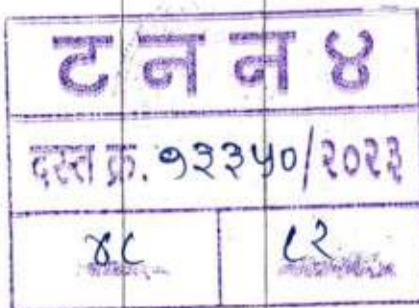 ट न न ४
दस्त क्र. १३३५०/२०२३
४८ ८२